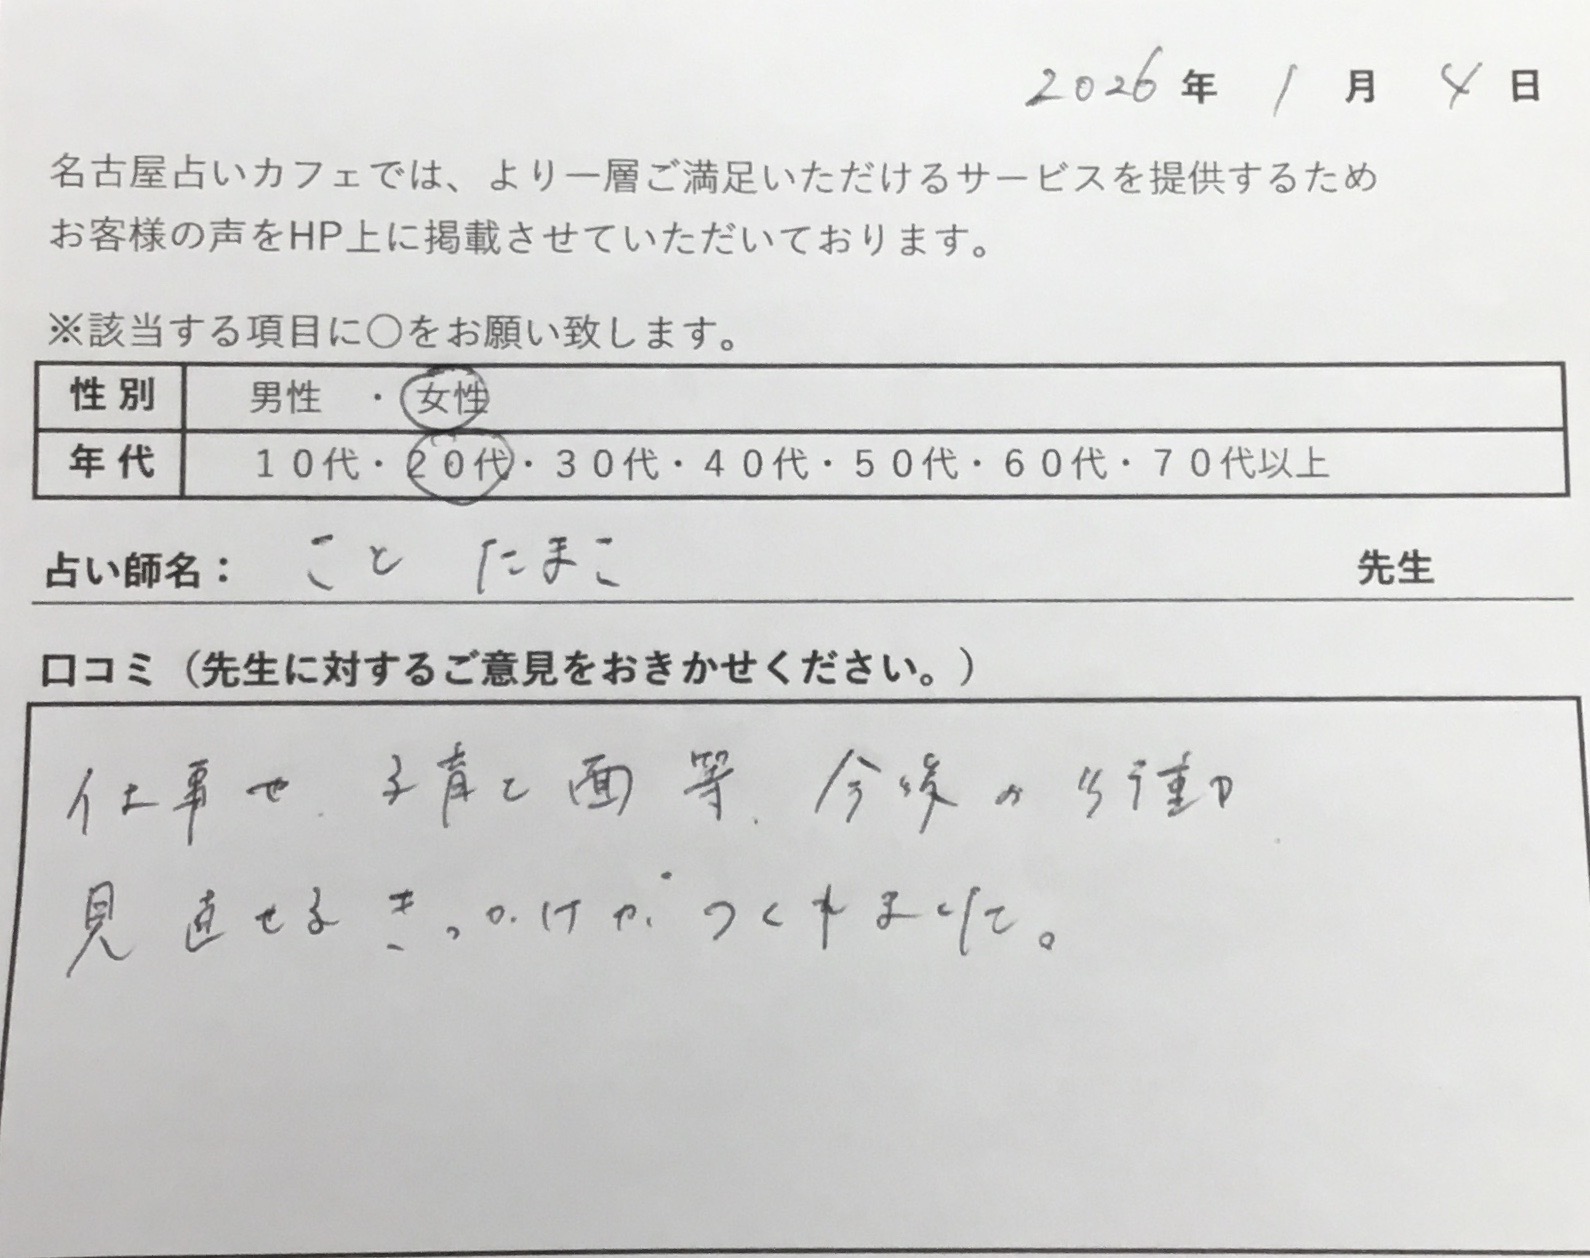 2026年 1月 4日
名古屋占いカフェでは、より一層ご満足いただけるサービスを提供するため
お客様の声をHP上に掲載させていただいております。
※該当する項目に〇をお願い致します。
性別 男性 ・ 女性
年代 10代・20代・30代・40代・50代・60代・70代以上
占い師名： こと たまこ 先生
口コミ（先生に対するご意見をおきかせください。）
仕事や 子育て面等、今後の行動
見直せるきっかけがつくれました。